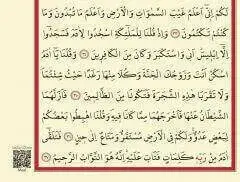 لَكُمْ إِنِّىٓ أَعْلَمُ غَيْبَ السَّمَٰوَٰتِ وَالْأَرْضِ وَأَعْلَمُ مَا تُبْدُونَ وَمَا
كُنتُمْ تَكْتُمُونَ ٣٣ وَإِذْ قُلْنَا لِلْمَلَٰٓئِكَةِ اسْجُدُوا لِءَادَمَ فَسَجَدُوٓا
إِلَّآ إِبْلِيسَ أَبَىٰ وَاسْتَكْبَرَ وَكَانَ مِنَ الْكَٰفِرِينَ ٣٤ وَقُلْنَا يَٰٓـَٔادَمُ
اسْكُنْ أَنتَ وَزَوْجُكَ الْجَنَّةَ وَكُلَا مِنْهَا رَغَدًا حَيْثُ شِئْتُمَا
وَلَا تَقْرَبَا هَٰذِهِ الشَّجَرَةَ فَتَكُونَا مِنَ الظَّٰلِمِينَ ٣٥ فَأَزَلَّهُمَا
الشَّيْطَٰنُ عَنْهَا فَأَخْرَجَهُمَا مِمَّا كَانَا فِيهِ وَقُلْنَا اهْبِطُوا بَعْضُكُمْ
لِبَعْضٍ عَدُوٌّ وَلَكُمْ فِى الْأَرْضِ مُسْتَقَرٌّ وَمَتَٰعٌ إِلَىٰ حِينٍ ٣٦ فَتَلَقَّىٰٓ
ءَادَمُ مِن رَّبِّهِۦ كَلِمَٰتٍ فَتَابَ عَلَيْهِ إِنَّهُۥ هُوَ التَّوَّابُ الرَّحِيمُ ٣٧